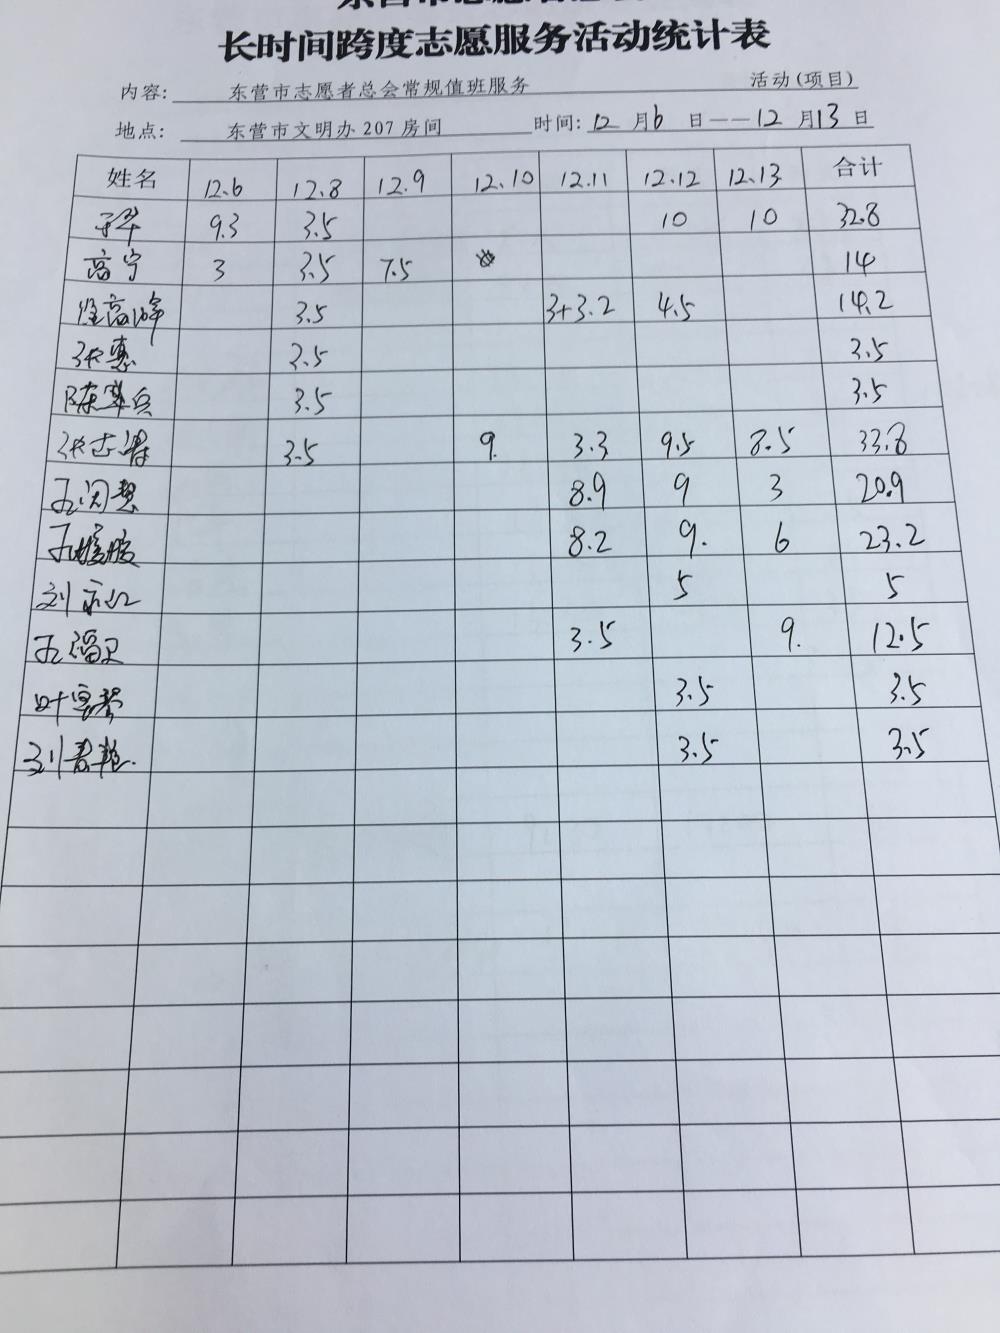 长时间跨度志愿服务活动统计表
内容: 东营市志愿者总会常规值班服务 活动(项目)
地点: 东营市文明办 207 房间 时间: 12 月 6 日——12 月 13 日
姓名 12.6 12.8 12.9 12.10 12.11 12.12 12.13 合计
9.3 3.5 10 10 32.8
高宁 3 3.5 7.5 14
3.5 3+3.2 4.5 14.2
张惠 3.5 3.5
3.5 3.5
3.5 9. 3.3 9.5 8.5 33.8
8.9 9 3 20.9
8.2 9. 6 23.2
5 5
3.5 9. 12.5
3.5 3.5
3.5 3.5